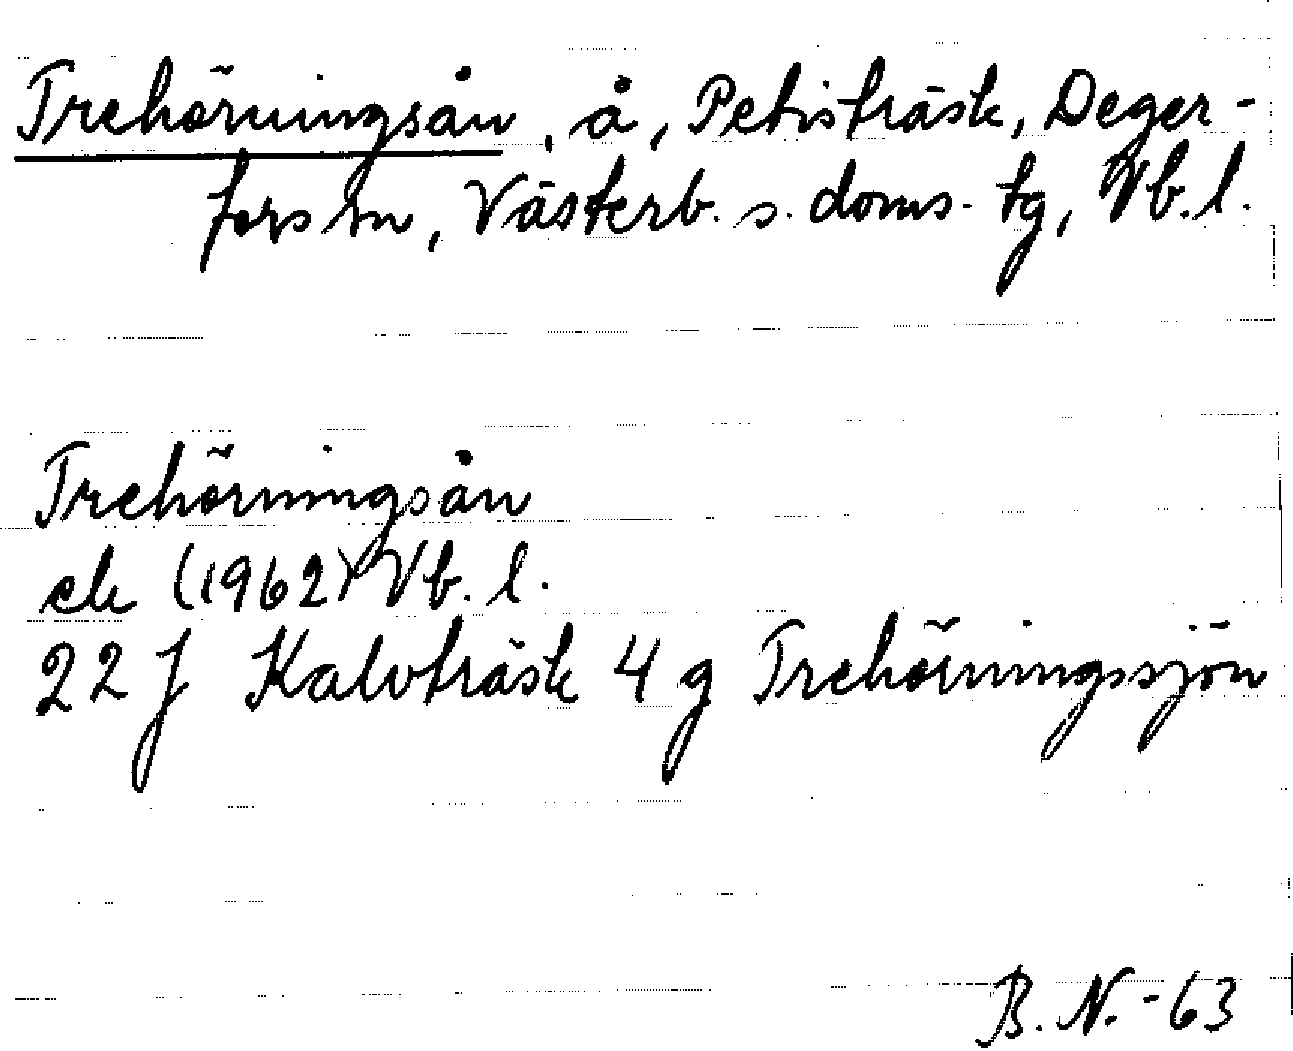 Trehörningsån, å, Petisträsk, Deger-
fors sn, Västerb. s. doms. tg, Vb. l.
Trehörningsån
ek (1962) Vb. l.
22 J Kalvträsk 4 g Trehörningssjön
B. N. -63